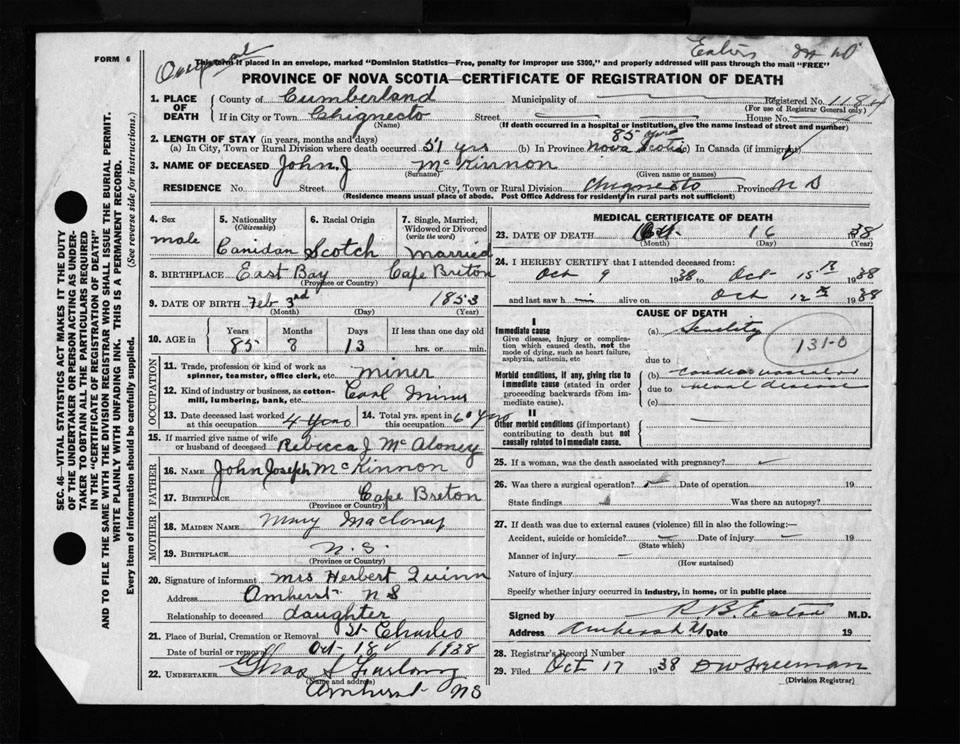 FORM 6
Eaton
This form if placed in an envelope, marked "Dominion Statistics—Free, penalty for improper use $300," and properly addressed will pass through the mail "FREE"
PROVINCE OF NOVA SCOTIA—CERTIFICATE OF REGISTRATION OF DEATH
1. PLACE OF DEATH County of Cumberland Municipality of — Registered No. 1184
(For use of Registrar General only)
If in City or Town Chignecto Street — House No. —
(Name) (If death occurred in a hospital or institution, give the name instead of street and number)
2. LENGTH OF STAY (in years, months and days) 85 yrs
(a) In City, Town or Rural Division where death occurred 51 yrs (b) In Province Nova Scotia (c) In Canada (if immigrant)
3. NAME OF DECEASED John J McKinnon
(Surname) (Given name or names)
RESIDENCE No. Street City, Town or Rural Division Chignecto Province N S
(Residence means usual place of abode. Post Office Address for residents in rural parts not sufficient)
4. Sex 5. Nationality 6. Racial Origin 7. Single, Married, Widowed or Divorced
(Citizenship) (write the word)
male Canidan Scotch married
8. BIRTHPLACE East Bay Cape Breton
(Province or Country)
9. DATE OF BIRTH Feb 3rd 1853
(Month) (Day) (Year)
10. AGE in Years Months Days If less than one day old
85 8 13 hrs. or min.
OCCUPATION
11. Trade, profession or kind of work as spinner, teamster, office clerk, etc. miner
12. Kind of industry or business, as cotton-mill, lumbering, bank, etc. Coal Mine
13. Date deceased last worked at this occupation 4 years 14. Total yrs. spent in this occupation 60 yrs
15. If married give name of wife or husband of deceased Rebecca J McAloney
FATHER
16. NAME John Joseph McKinnon
17. BIRTHPLACE Cape Breton
(Province or Country)
MOTHER
18. MAIDEN NAME Mary
19. BIRTHPLACE N. S.
(Province or Country)
20. Signature of informant Mrs Herbert Quinn
Address Amherst N S
Relationship to deceased daughter
21. Place of Burial, Cremation or Removal St Charles
Date of burial or removal Oct 18 1938
22. UNDERTAKER Chas S Furlong
(Name and address)
Amherst N S
MEDICAL CERTIFICATE OF DEATH
23. DATE OF DEATH Oct. 16 1938
(Month) (Day) (Year)
24. I HEREBY CERTIFY that I attended deceased from:
Oct 9 1938 to Oct 15 1938
and last saw him alive on Oct 12 1938
CAUSE OF DEATH
I
Immediate cause (a) Senility
Give disease, injury or complication which caused death, not the mode of dying, such as heart failure, asphyxia, asthenia, etc
131-0
due to
Morbid conditions, if any, giving rise to immediate cause (stated in order proceeding backwards from immediate cause). (b) Cardiovascular
due to renal disease
(c)
II
Other morbid conditions (if important) contributing to death but not causally related to immediate cause. —
25. If a woman, was the death associated with pregnancy?
26. Was there a surgical operation? Date of operation 19
State findings Was there an autopsy?
27. If death was due to external causes (violence) fill in also the following:—
Accident, suicide or homicide? — Date of injury — 19
(State which)
Manner of injury —
(How sustained)
Nature of injury
Specify whether injury occurred in industry, in home, or in public place
Signed by R B. Eaton M.D.
Address Amherst Date 19
28. Registrar's Record Number
29. Filed Oct 17 1938 D W Freeman
(Division Registrar)
SEC. 46—VITAL STATISTICS ACT MAKES IT THE DUTY
OF THE UNDERTAKER OR PERSON ACTING AS UNDER-
TAKER TO OBTAIN ALL THE PARTICULARS REQUIRED
IN THE "CERTIFICATE OF REGISTRATION OF DEATH"
AND TO FILE THE SAME WITH THE DIVISION REGISTRAR WHO SHALL ISSUE THE BURIAL PERMIT.
WRITE PLAINLY WITH UNFADING INK. THIS IS A PERMANENT RECORD.
Every item of information should be carefully supplied. (See reverse side for instructions.)